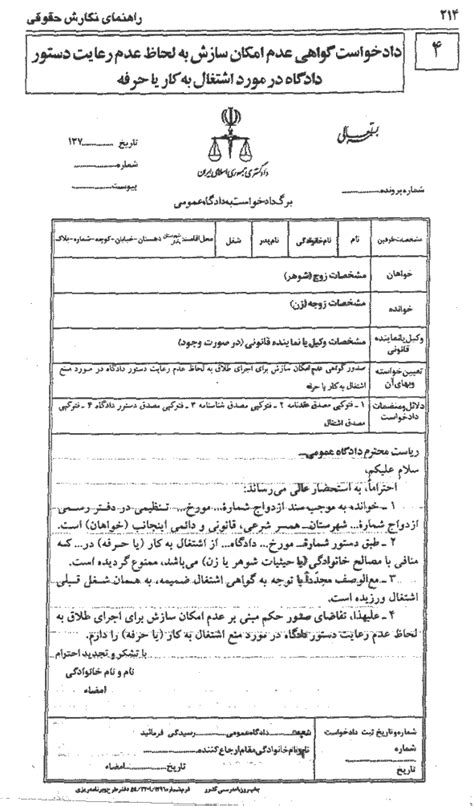 ۲۱۴
راهنمای نگارش حقوقی
۴
دادخواست گواهی عدم امکان سازش به لحاظ عدم رعایت دستور
دادگاه در مورد اشتغال به کار یا حرفه
بسمه تعالی
دادگستری جمهوری اسلامی ایران
تاریخ ............ ۱۳۷
شماره ............
پیوست ............
شماره پرونده ............
برگ دادخواست به دادگاه عمومی
مشخصات طرفین | نام | نام خانوادگی | نام پدر | شغل | محل اقامت: شهرستان بخش دهستان - خیابان - کوچه - شماره - پلاک
خواهان | مشخصات زوج (شوهر)
خوانده | مشخصات زوجه (زن)
وکیل یا نماینده قانونی | مشخصات وکیل یا نماینده قانونی (در صورت وجود)
تعیین خواسته وبهای آن | صدور گواهی عدم امکان سازش برای اجرای طلاق به لحاظ عدم رعایت دستور دادگاه در مورد منع
اشتغال به کار یا حرفه
دلائل ومنضمات دادخواست | ۱ - فتوکپی مصدق عقدنامه ۲ - فتوکپی مصدق شناسنامه ۳ - فتوکپی مصدق دستور دادگاه ۴ - فتوکپی
مصدق اشتغال
ریاست محترم دادگاه عمومی...
سلام علیکم،
احتراماً، به استحضار عالی می‌رساند:
۱ - خوانده به موجب سند ازدواج شمارهٔ... مورخ... تنظیمی در دفتر رسمی
ازدواج شمارهٔ... شهرستان... همسر شرعی، قانونی و دائمی اینجانب (خواهان) است.
۲ - طبق دستور شمارهٔ... مورخ... دادگاه... از اشتغال به کار (یا حرفه) در... که
منافی با مصالح خانوادگی (یا حیثیات شوهر یا زن) می‌باشد، ممنوع گردیده است.
۳ - مع‌الوصف مجدداً با توجه به گواهی اشتغال ضمیمه، به همان شغل قبلی
اشتغال ورزیده است.
۴ - علیهذا، تقاضای صدور حکم مبنی بر عدم امکان سازش برای اجرای طلاق به
لحاظ عدم رعایت دستور دادگاه در مورد منع اشتغال به کار (یا حرفه) را دارم.
با تشکر و تجدید احترام
نام و نام خانوادگی
امضاء
شماره و تاریخ ثبت دادخواست
شماره
تاریخ
شعبه ............ دادگاه عمومی ............ رسیدگی فرمائید
نام ونام خانوادگی مقام ارجاع کننده ............
تاریخ ............ امضاء